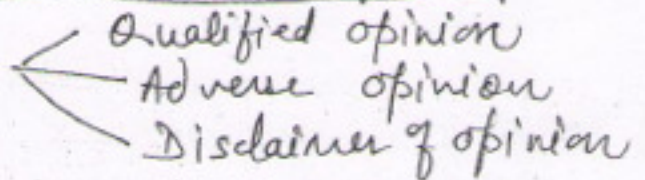 Qualified opinion
Adverse opinion
Disclaimer of opinion